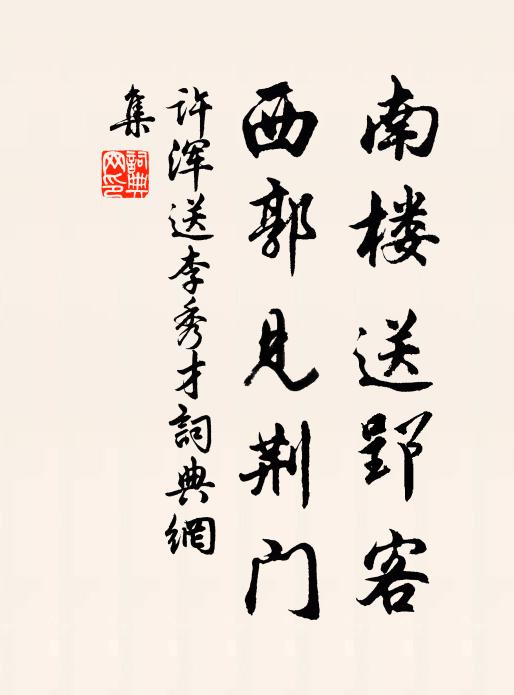 南楼送郢客
西郭见荆门
许浑送李秀才詞典網
集
詞典網印